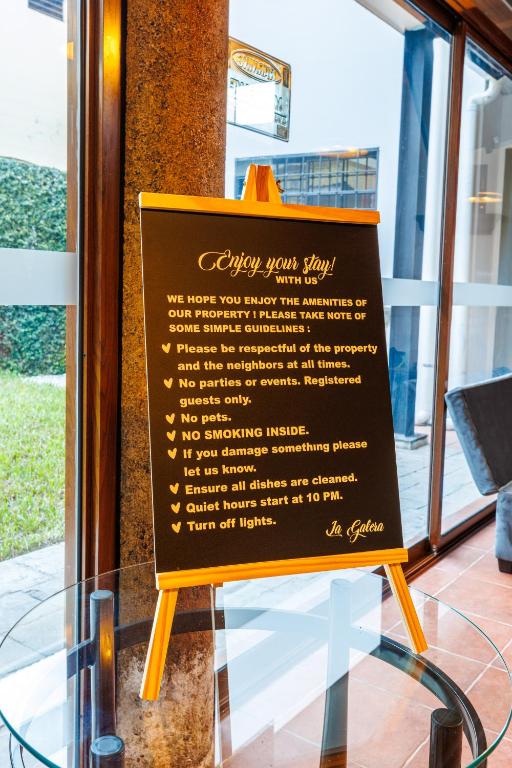 Enjoy your stay!
WITH US
WE HOPE YOU ENJOY THE AMENITIES OF
OUR PROPERTY ! PLEASE TAKE NOTE OF
SOME SIMPLE GUIDELINES :
Please be respectful of the property
and the neighbors at all times.
No parties or events. Registered
guests only.
No pets.
NO SMOKING INSIDE.
If you damage something please
let us know.
Ensure all dishes are cleaned.
Quiet hours start at 10 PM.
Turn off lights.
La Galera